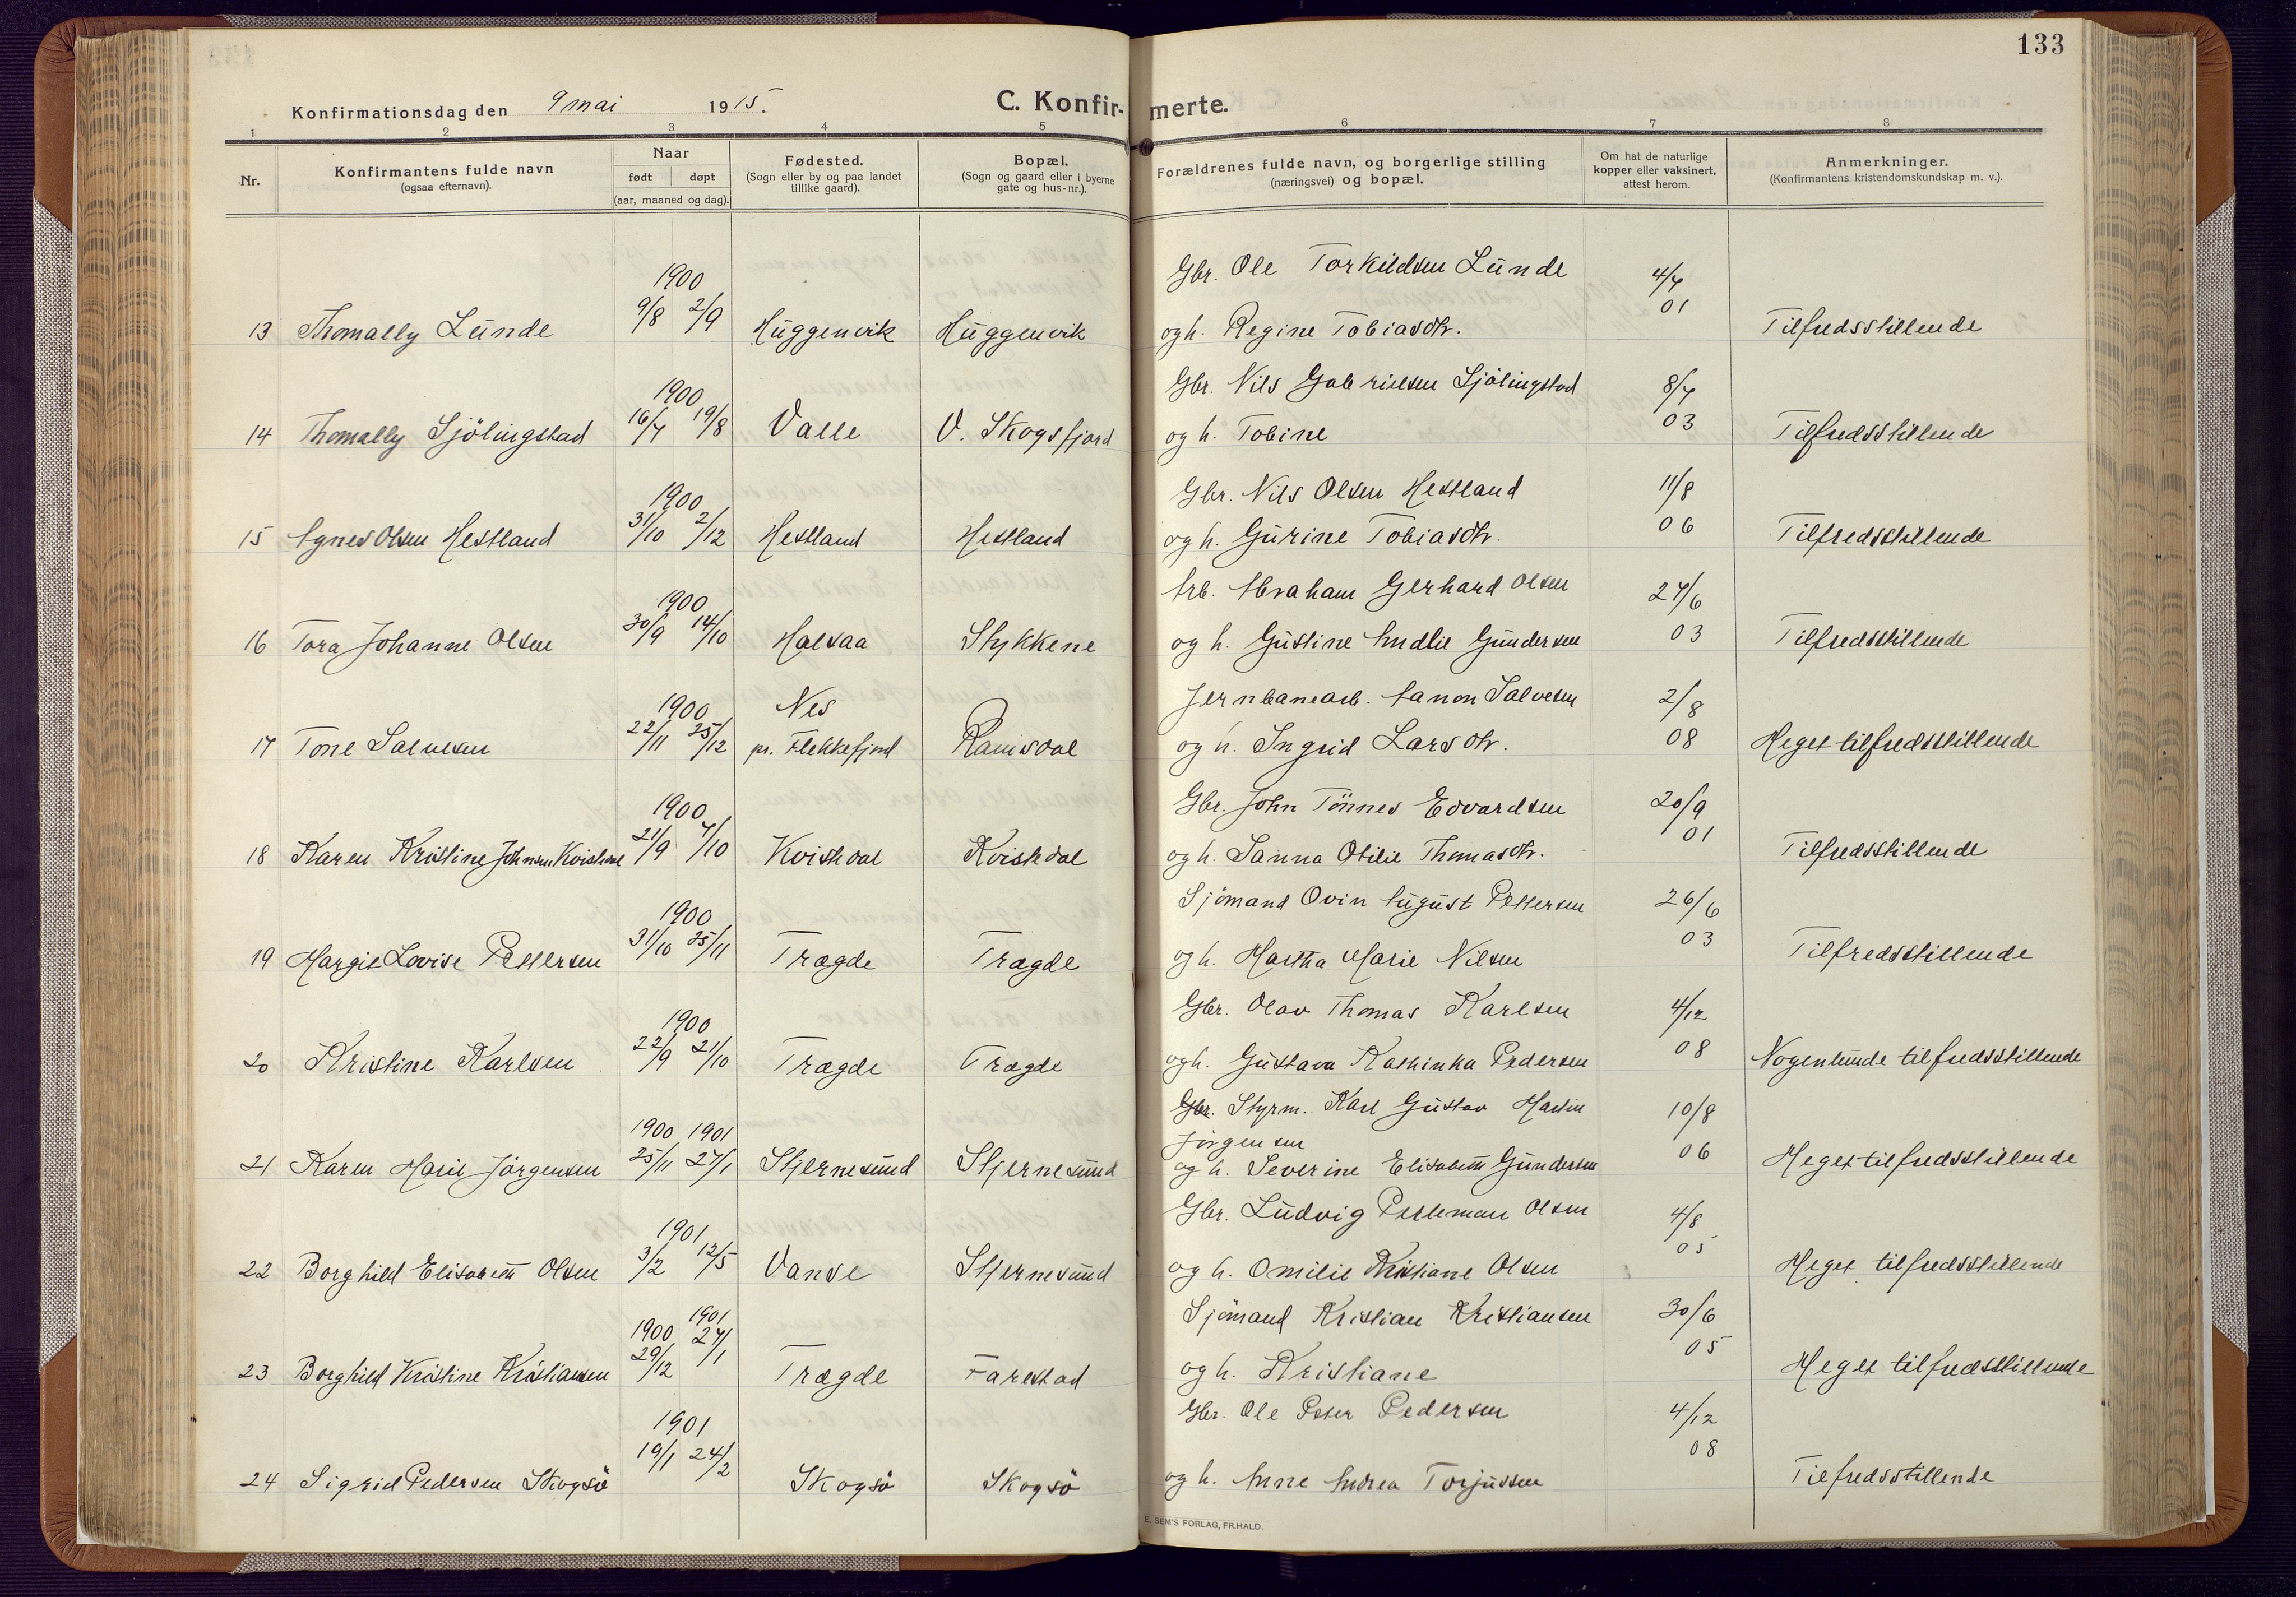 133
Konfirmationsdag den 9 mai 1915.
C. Konfir-merte.
1 2 3 4 5 6 7 8
Nr.
Konfirmantens fulde navn
(ogsaa efternavn).
Naar
født døpt
(aar, maaned og dag).
Fødested.
(Sogn eller by og paa landet
tillike gaard).
Bopæl.
(Sogn og gaard eller i byerne
gate og hus-nr.).
Forældrenes fulde navn, og borgerlige stilling
(næringsvei) og bopæl.
Om hat de naturlige
kopper eller vaksinert,
attest herom.
Anmerkninger.
(Konfirmantens kristendomskundskap m. v.).
1900 Gbr. Ole Torkildsen Lunde 4/7
13 Thomally Lunde 9/8 2/9 Huggenvik Huggenvik og h. Regine Tobiasdtr. 01 Tilfredsstillende
1900 Gbr. Nils Gabrielsen Sjölingstad 8/7
14 Thomally Sjölingstad 16/7 19/8 Valle V. Skogsfjord og h. Tobine 03 Tilfredsstillende
1900 Gbr. Nils Olsen Hestland 11/8
15 Agnes Olsen Hestland 31/10 2/12 Hestland Hestland og h. Gurine Tobiasdtr. 06 Tilfredsstillende
1900 Arb. Abraham Gerhard Olsen 27/6
16 Tora Johanne Olsen 30/9 14/10 Halsaa Stykkene og h. Gustine Gundersen 03 Tilfredsstillende
1900 Nes Jernbanearb. Aanon Salvesen 2/8
17 Tone Salvesen 22/11 25/12 pr. Flekkefjord og h. Ingrid Larsdtr. 08 Meget tilfredsstillende
1900 Gbr. John Tönnes Edvardsen 20/9
18 Karen Kristine Johnsen Kvisthdal 21/9 7/10 Kvishdal Kvishdal og h. Sanna Otilie Thomasdtr. 01 Tilfredsstillende
1900 Sjömand Ovin August Pettersen 26/6
19 Margit Lovise Pettersen 31/10 25/11 Trægde Trægde og h. Martha Marie Nilsen 03 Tilfredsstillende
1900 Gbr. Olav Thomas Karlsen 4/12
20 Kristine Karlsen 22/9 21/10 Trægde Trægde og h. Gustava Kathinka Pedersen 08 Nogenlunde tilfredsstillende
1900 1901 Gbr. Styrm. Karl Gustav Martin 10/8
Jörgensen
21 Karen Marie Jörgensen 25/11 27/1 Stjernesund Stjernesund og h. Severine Elisabeth Gundersen 06 Meget tilfredsstillende
1901 Gbr. Ludvig Petteman Olsen 4/8
22 Borghild Elisabeth Olsen 3/2 12/5 Vanse Stjernesund og h. Omilie Kristiane Olsen 05 Meget tilfredsstillende
1900 1901 Sjömand Kristian Kristiansen 30/6
23 Borghild Kristine Kristiansen 29/12 27/1 Trægde Farestad og h. Kristiane 05 Meget tilfredsstillende
1901 Gbr. Ole Peter Pedersen 4/12
24 Sigrid Pedersen Skogsö 19/1 24/2 Skogsö Skogsö og h. Anne Andrea Torjussen 08 Tilfredsstillende
E. SEM'S FORLAG, FR.HALD.